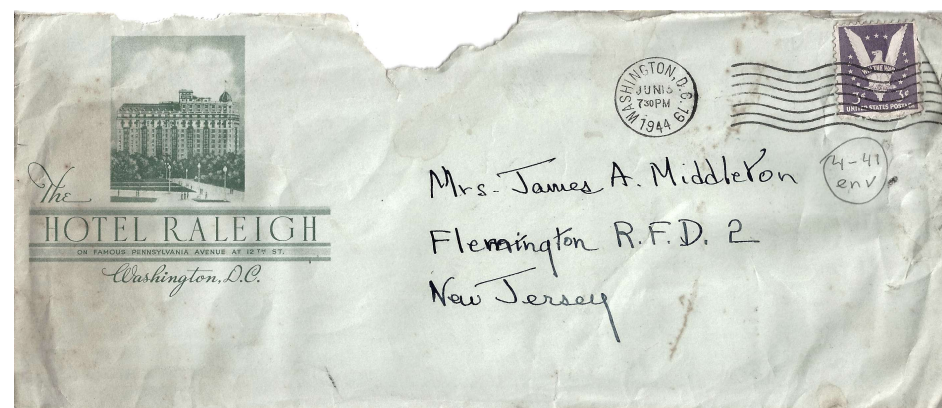 The
HOTEL RALEIGH
ON FAMOUS PENNSYLVANIA AVENUE AT 12TH ST.
Washington, D.C.
WASHINGTON, D.C. 19
JUN 13
730 PM
1944
WIN THE WAR
3¢ 3¢
UNITED STATES POSTAGE
Mrs. James A. Middleton
Flemington R.F.D. 2
New Jersey
env